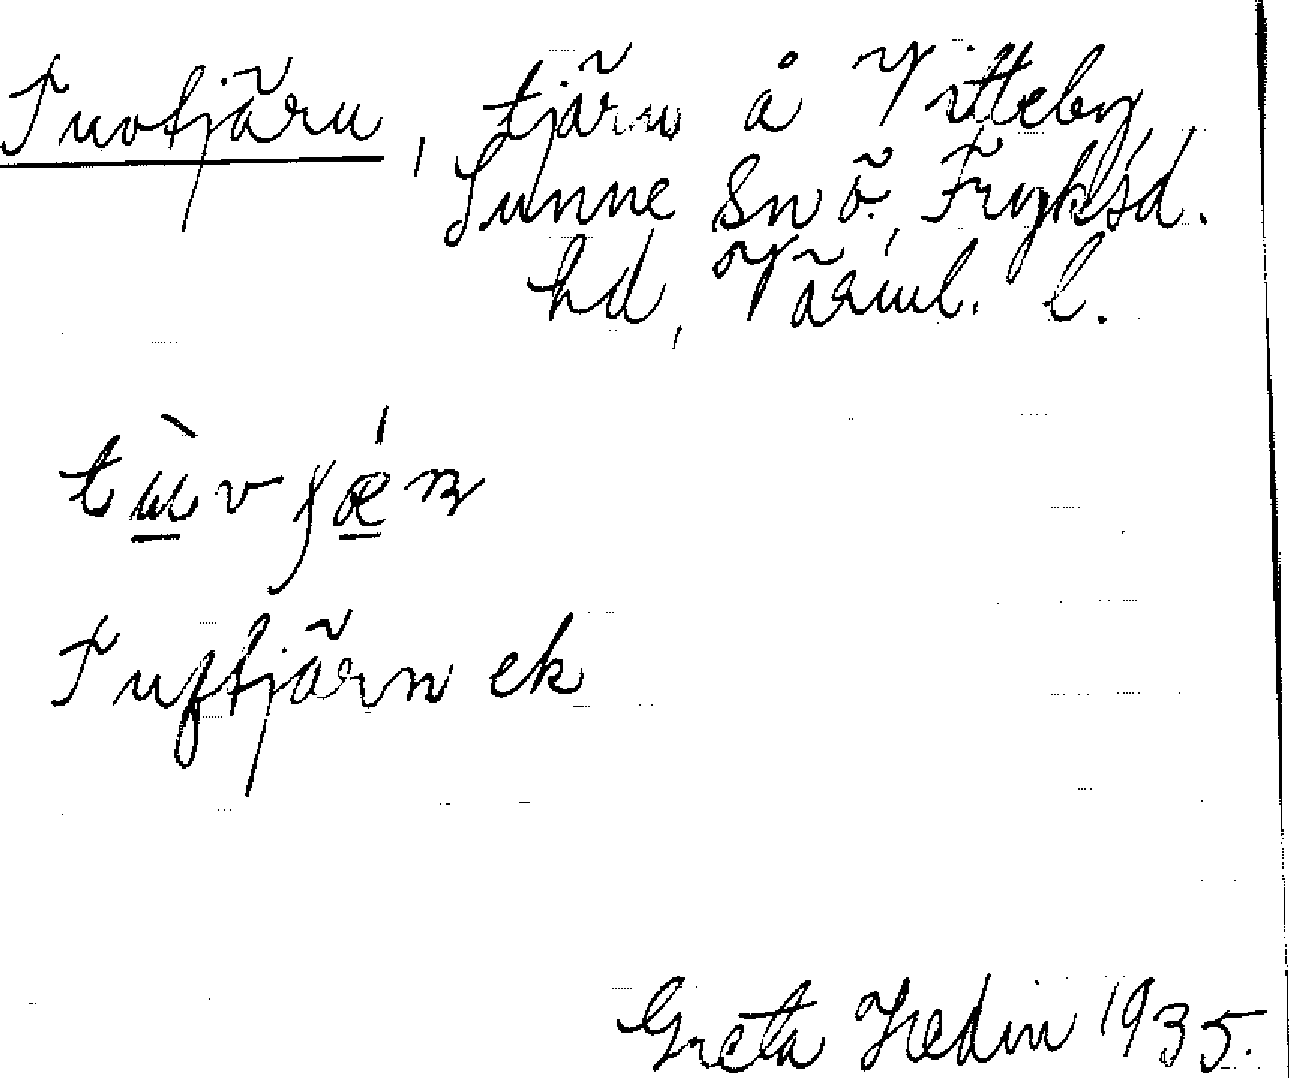 Tuvtjärn, tjärn å Vitteby
Sunne sn ö., Fryksd.
hd, Värml. l.
tù̲vʃǽ̲n
Tuftjärn ek
Greta Hedin 1935.